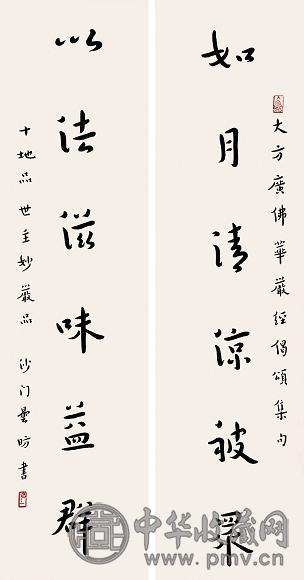 大方廣佛華嚴經偈頌集句
如月清涼被眾
以法滋味益群
十地品 世主妙嚴品 沙门曇昉書
中华收藏网
www.pmv.cn